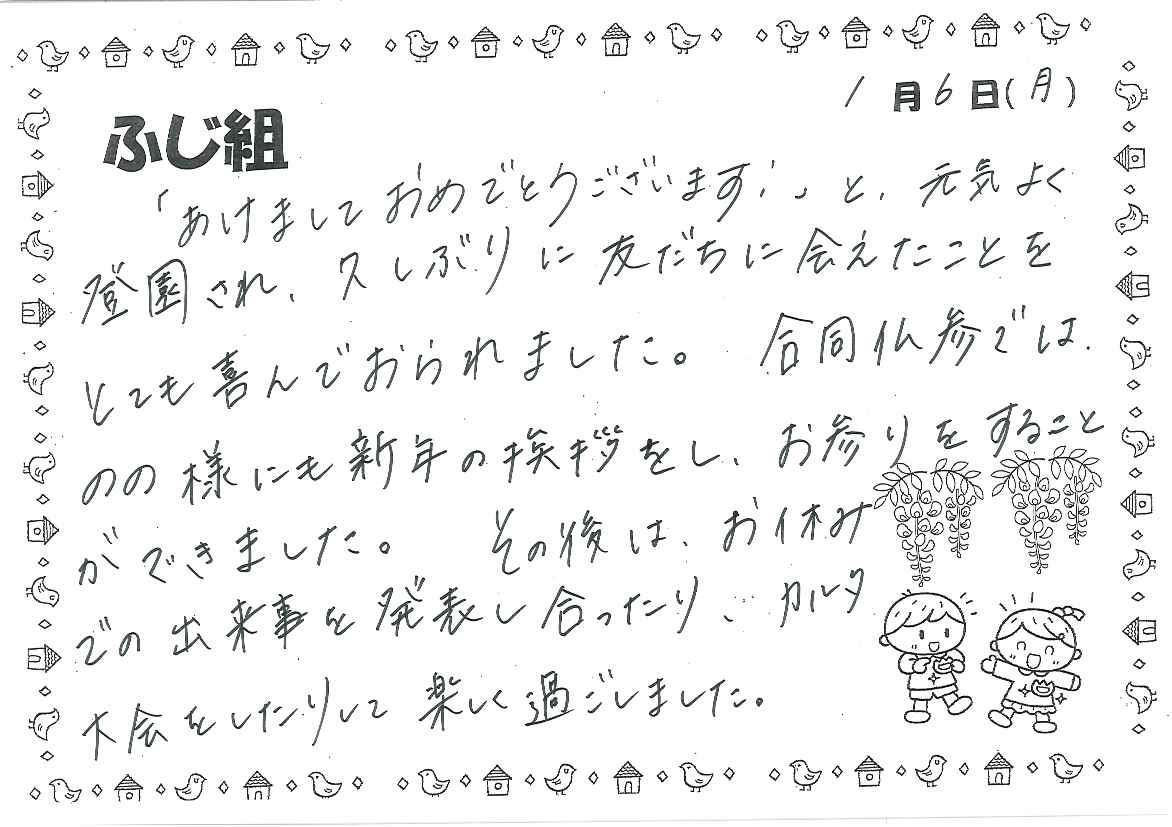 1月6日(月)
ふじ組
「あけましておめでとうございます！」と、元気よく
登園され、久しぶりに友だちに会えたことを
とても喜んでおられました。合同仏参では、
のの様にも新年の挨拶をし、お参りをすること
ができました。その後は、お休み
での出来事を発表し合ったり、カルタ
大会をしたりして楽しく過ごしました。